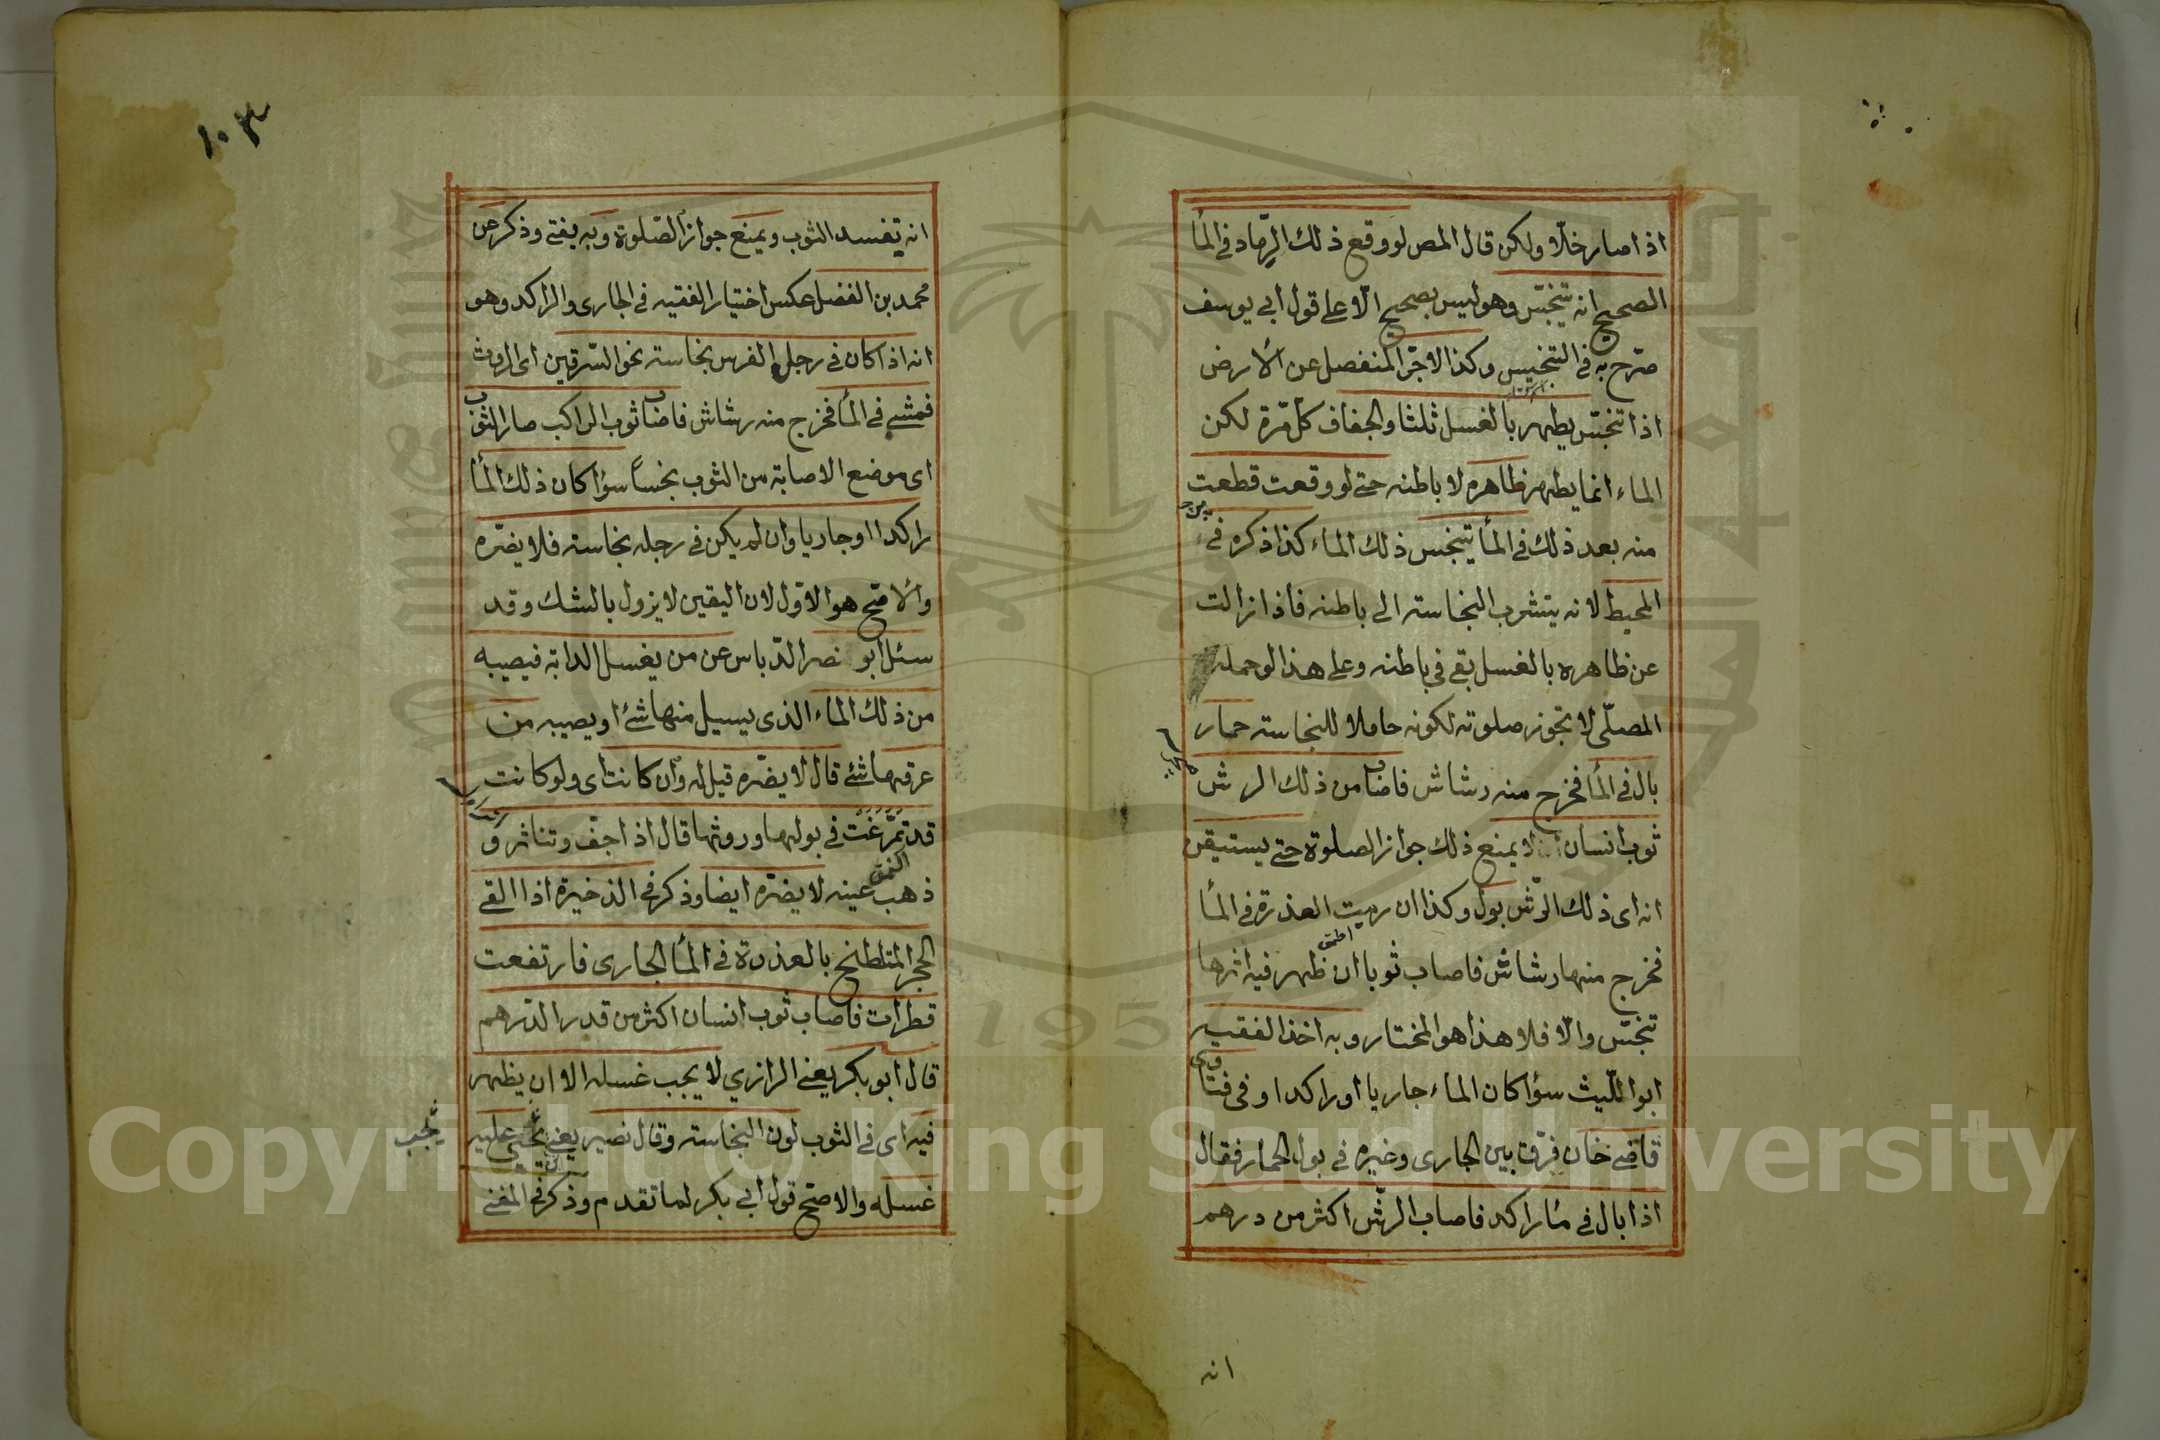 اذا صار خلّا ولكن قال المص لو وقع ذلك الرّماد في المأ
الصحيح انه يتنجّس وهو ليس بصحيح الّا على قول ابي يوسف
صّرح به في التنجيس وكذا الاجّر المنفصل عن الارض
اذا تنجّس يطهر بالغسل ثلثا والجفاف كلّ مّرة لكن
الماء انما يطهر ظاهره لا باطنه حتى لو وقعت قطعت
منه بعد ذلك في المأ يتنجس ذلك الماء كذا ذكره في
المحيط لانه يتشرب النجاسة الى باطنه فاذا زالت
عن ظاهره بالغسل بقى في باطنه وعلى هذا لو حمله
المصلّى لا تجوز صلوته لكونه حاملا للنجاسة حمار
بال في المأ فخرج منه رشاش فاصاب من ذلك الرش
ثوب انسان لا يمنع ذلك جواز الصلوة حتى يستيقن
انه اى ذلك الرّش بول وكذا ان رميت العذرة في المأ
فخرج منها رشاش فاصاب ثوبا ان ظهر فيه اثرها
تنجّس والّا فلا هذا هو المختار وبه اخذ الفقيه
ابو اللّيث سؤا كان الماء جاريا او راكدا وفى فتاوى
قاضى خان فرّق بين الجارى وغيره فى بول الحمار فقال
اذا بال فى ماء راكد فاصاب الرّش اكثر من درهم
انه
١٠٣
انه يفسد الثوب ويمنع جواز الصّلوة وبه يفتى وذكر عن
محمد بن الفضل عكس اختيار الفقيه في الجارى والراكد وهو
انه اذا كان في رجل الفرس نجاسة نحو السّرقين اى الروث
فمشى في المأ فخرج منه رشاش فاصاب ثوب الراكب صار الثوب
اى موضع الاصابة من الثوب نجسا سؤا كان ذلك المأ
راكدا او جاريا وان لم يكن في رجله نجاسة فلا يضّره
والاصّح هو الاوّل لان اليقين لا يزول بالشك وقد
سئل ابو نصر الدّباس عن من يغسل الدابة فيصيبه
من ذلك الماء الذى يسيل منها شئ او يصيبه من
عرقها شئ قال لا يضّره قيل له وان كانت اى ولو كانت
قد تمّرغت في بولها وروثها قال اذا جفّ وتناثر و
ذهب عينه لا يضّره ايضا وذكر في الذخيرة اذا القى
الحجر المتلطخ بالعذرة في المأ الجارى فارتفعت
قطرات فاصاب ثوب انسان اكثر من قدر الدّرهم
قال ابو بكر يعنى الرازي لا يجب غسله الا ان يظهر
فيه اى في الثوب لون النجاسة وقال نصير يعنى عليه
يجب
غسله والاصّح قول ابي بكر لما تقدم وذكر في المغنى